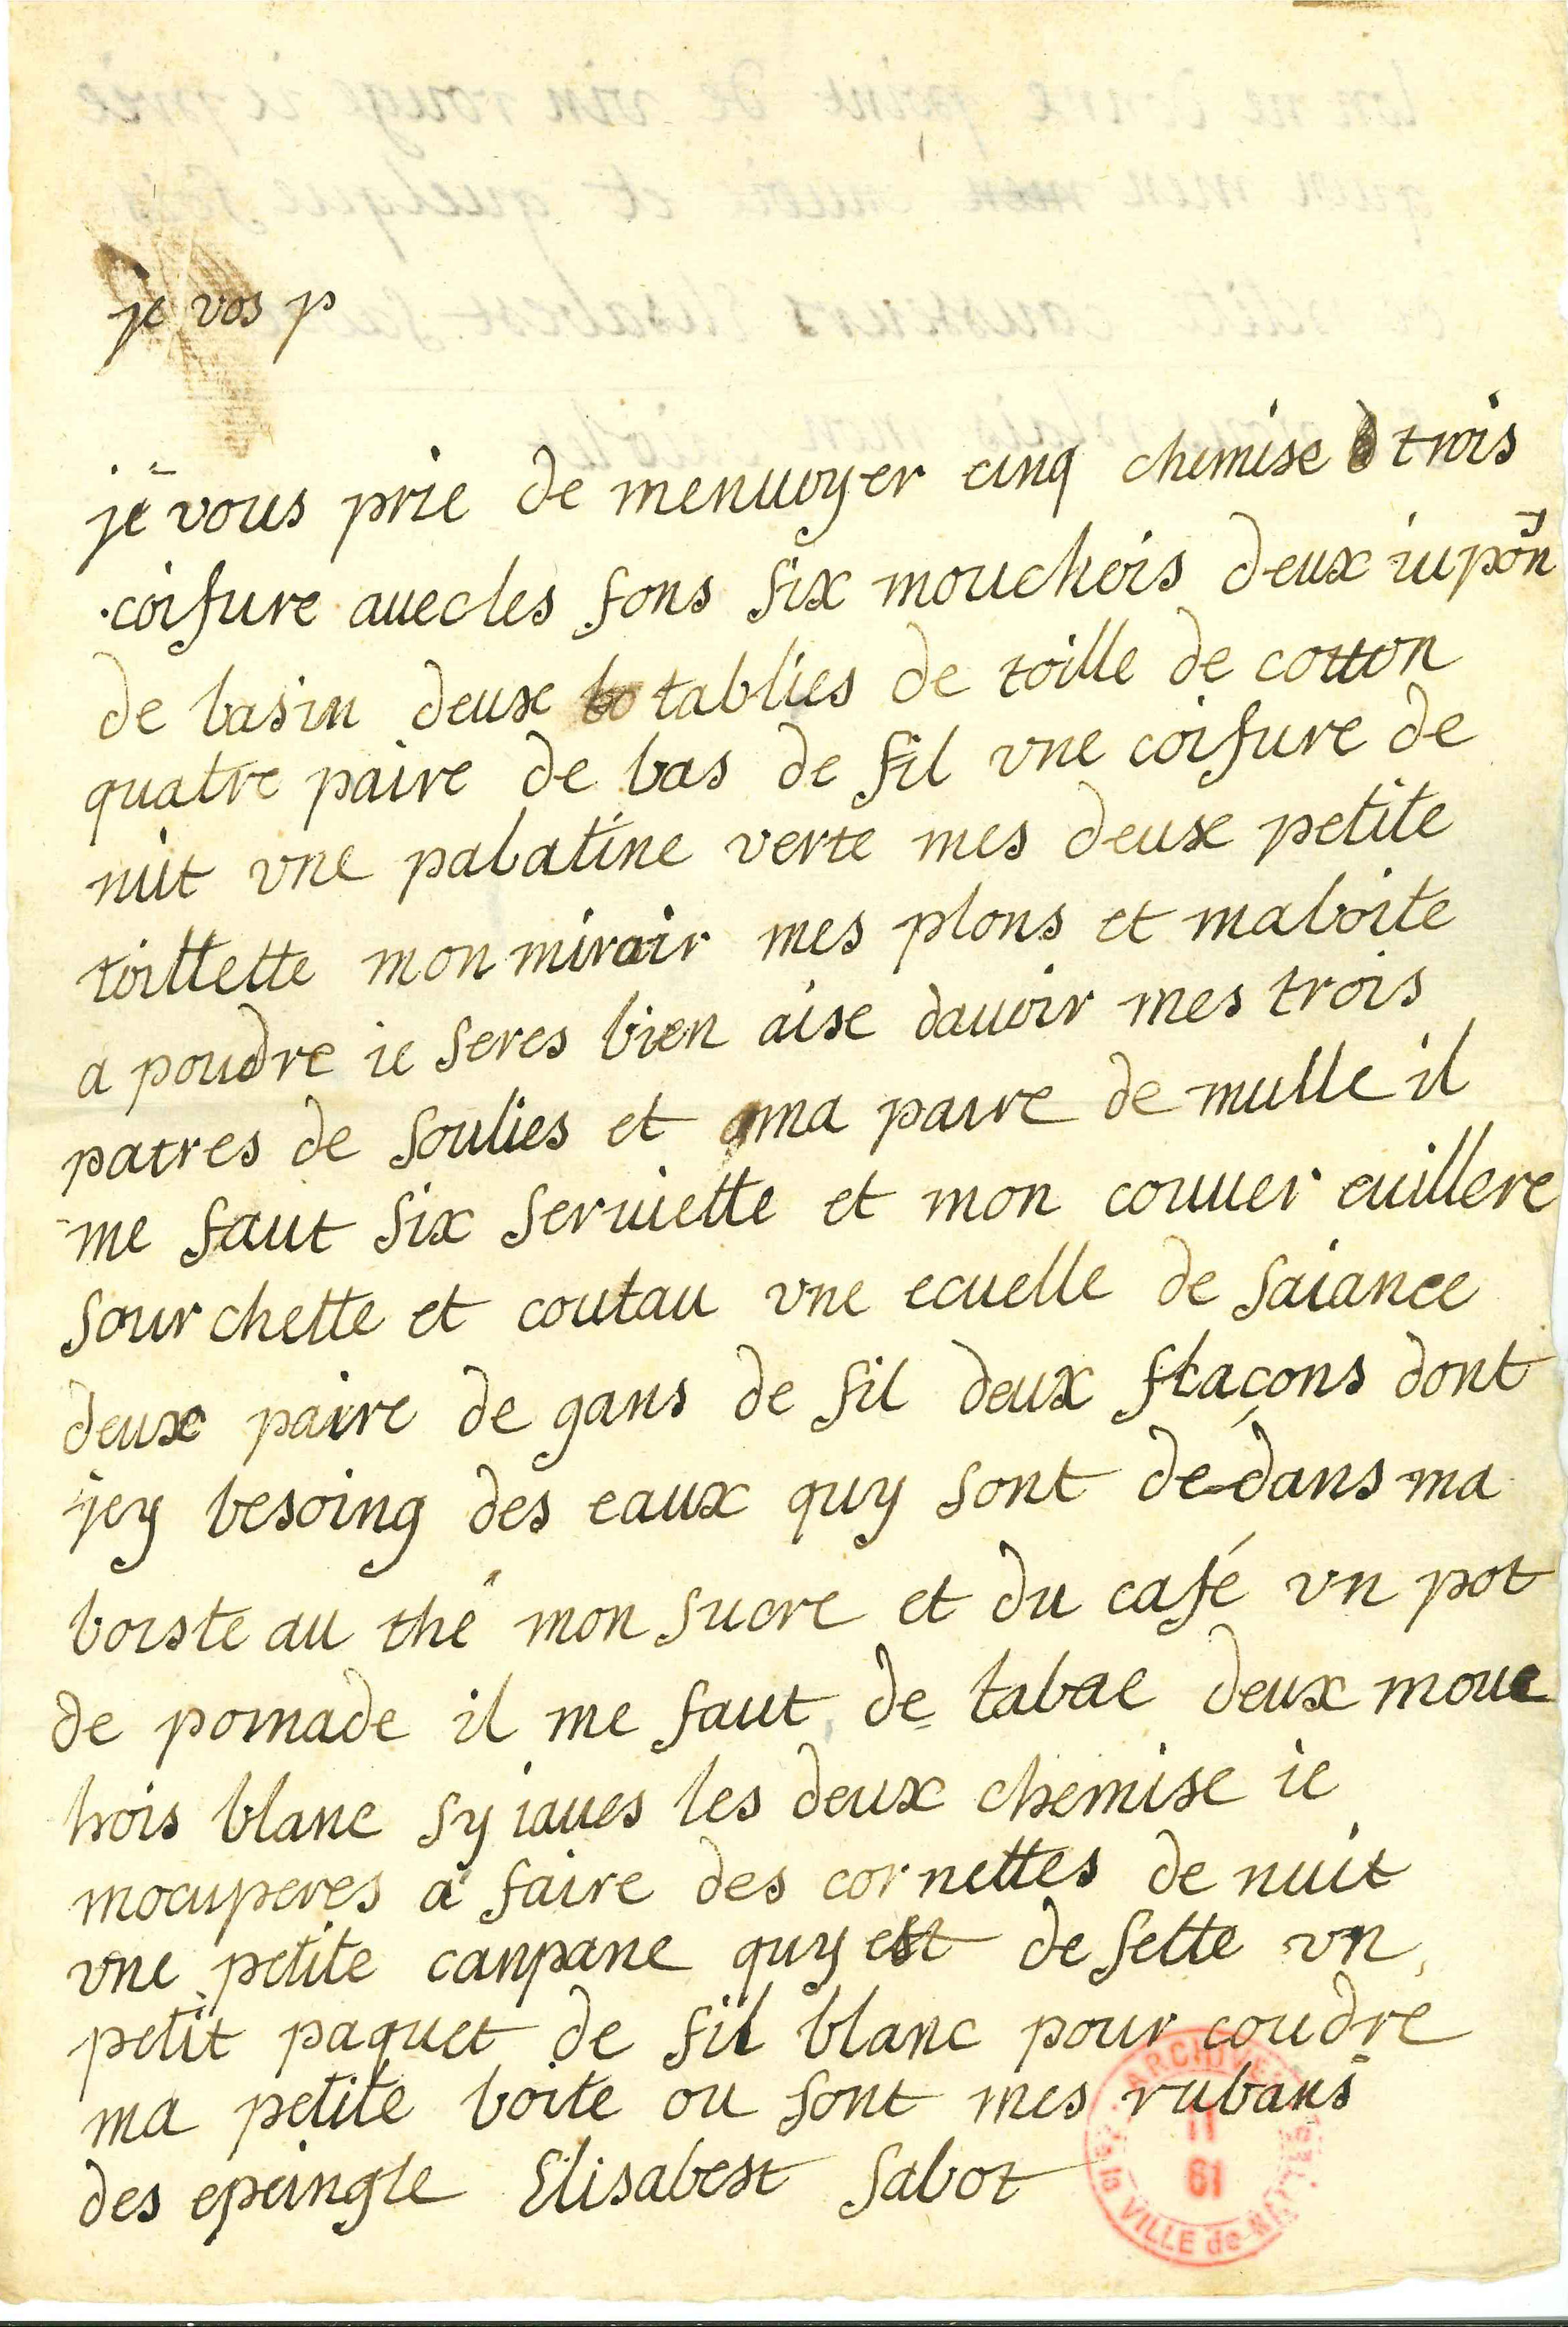 je vos p
je vous prie de menuoyer cinq chemise trois
coifure auec les fons six mouchois deux iupon
de basin deux tablies de toille de cotton
quatre paire de bas de fil vne coifure de
nuit vne palatine verte mes deux petite
toillette mon miroir mes plons et ma boite
a poudre ie seres bien aise dauoir mes trois
paires de soulies et ma paire de mulle il
me faut six seruiette et mon couuer cuillere
fourchette et coutau vne ecuelle de faiance
deux paire de gans de fil deux flacons dont
jey besoing des eaux quy sont dedans ma
boiste au thé mon sucre et du café vn pot
de pomade il me faut de tabac deux mouc
hois blanc sy iaues les deux chemise ie
mocuperes a faire des cornettes de nuit
vne petite canpane quy est de fette vn
petit paquet de fil blanc pour coudre
ma petite boite ou sont mes rubans
des epeingle Elisabest Sabot
ARCHIVES
II
61
de la VILLE de NANTES